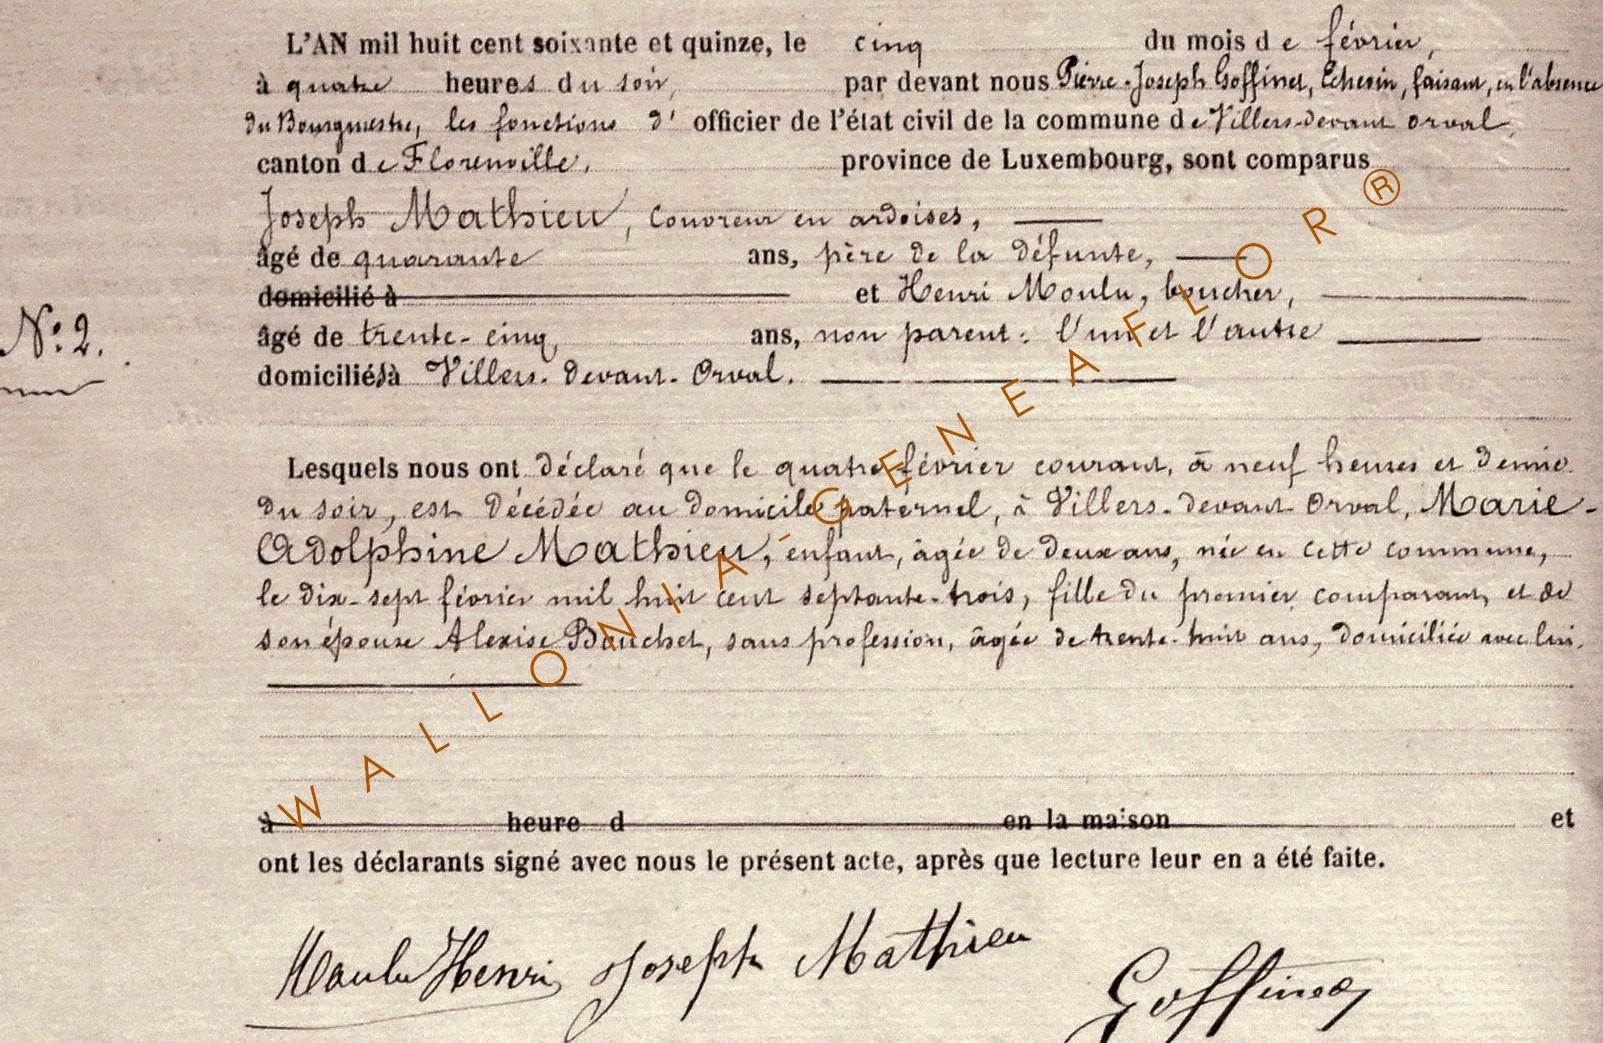 L'AN mil huit cent soixante et quinze, le cinq du mois de février,
à quatre heures du soir, par devant nous Pierre-Joseph Goffinet, Echevin, faisant, en l'absence
du Bourgmestre, les fonctions d' officier de l'état civil de la commune de Villers-devant orval,
canton de Florenville, province de Luxembourg, sont comparus
Joseph Mathieu, couvreur en ardoises,
âgé de quarante ans, père de la défunte,
domicilié à et Henri Moulu, boucher,
N.º 2.
âgé de trente-cinq ans, non parent: l'un et l'autre
domiciliés à Villers-devant-Orval.
Lesquels nous ont déclaré que le quatre février courant, à neuf heures et demie
du soir, est décédée au domicile paternel, à Villers-devant Orval, Marie-
Adolphine Mathieu, enfant, âgée de deux ans, née en cette commune,
le dix-sept février mil huit cent septante-trois, fille du premier comparant, et de
son épouse Alexise Bauchet, sans profession, âgée de trente-huit ans, domiciliée avec lui.
à heure d en la maison et
ont les déclarants signé avec nous le présent acte, après que lecture leur en a été faite.
Moulu Henri Joseph Mathieu Goffinet
WALLONIA-GENEAFLOR®